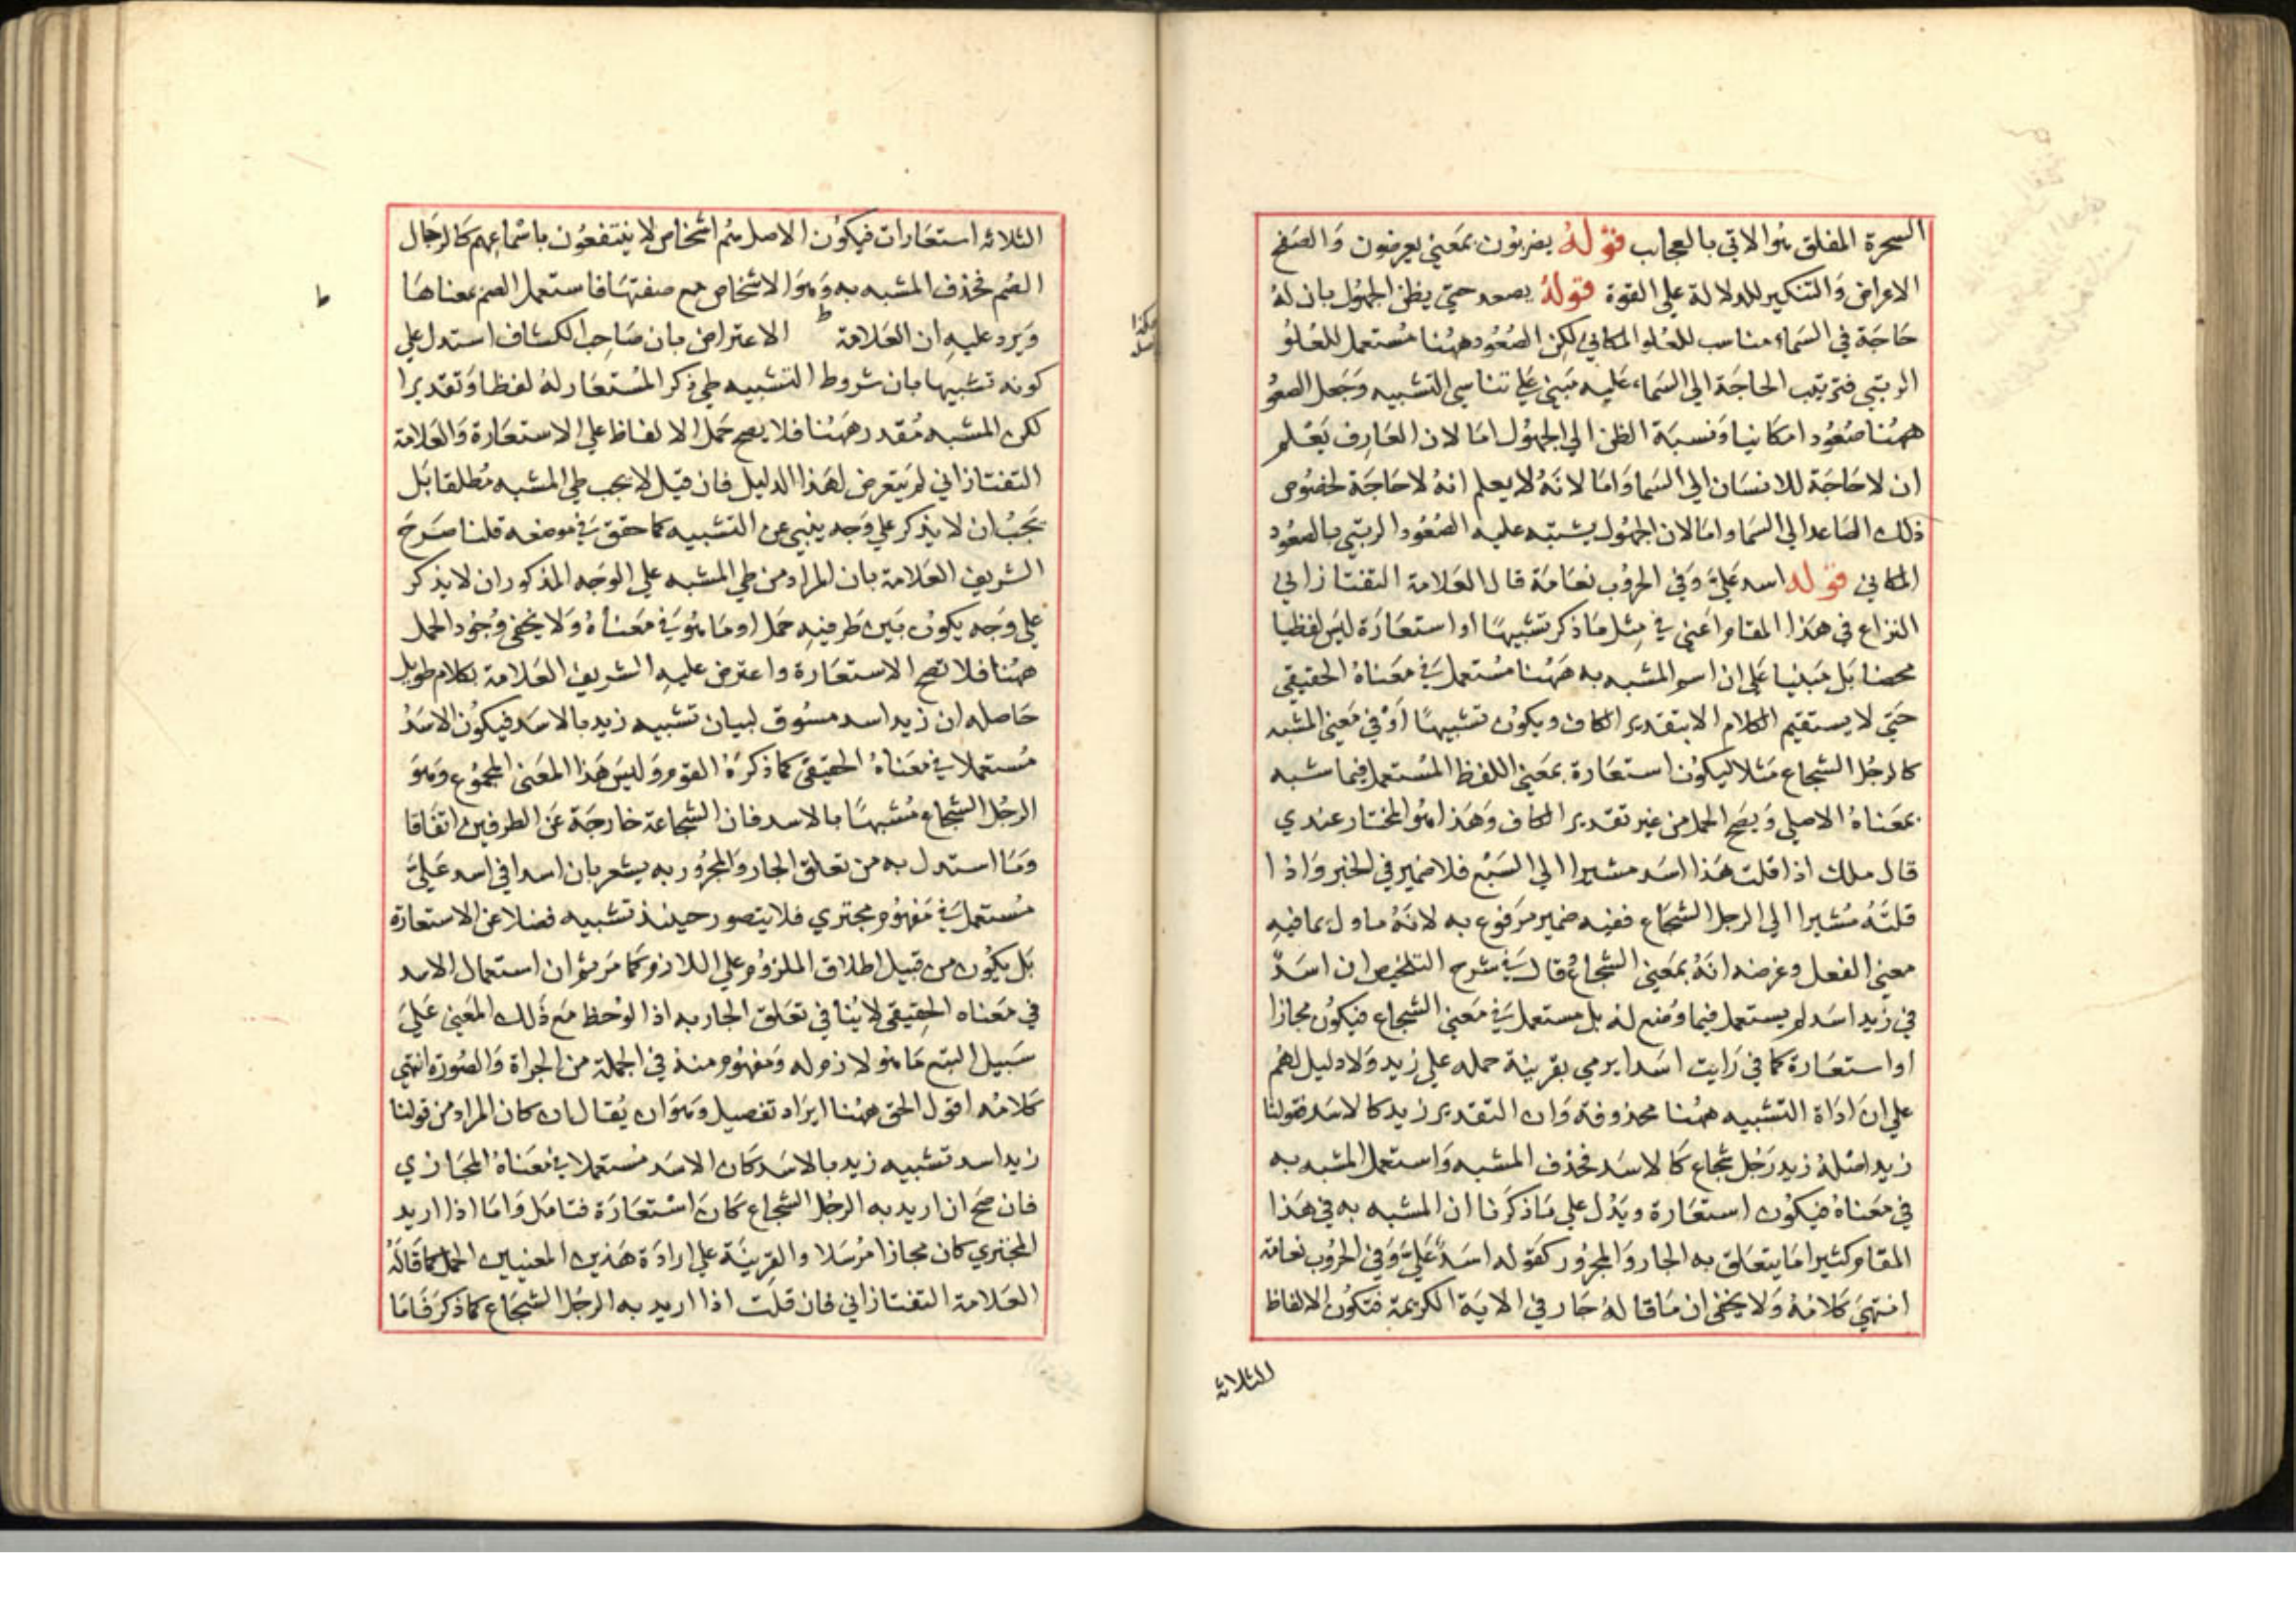 السحرة المفلق هو الاتي بالعجايب قوله يضربون بمعني يعرضون والصفح
الاعراض والتنكير للدلالة علي القوة قوله يصعد حتي يظن الجهول بان له
حاجة في السماء مناسب للعلو المكاني لكن الصعود ههنا مستعمل للعلو
الرتبي فترتب الحاجة الي السماء عليه مبني علي تناسي التشبيه وجعل الصعو
ههنا صعودا مكانيا ونسبة الظن الي الجهول اما لان العارف يعلم
ان لا حاجة للانسان الي السما واما لانه لا يعلم انه لا حاجة لخصوص
ذلك الصاعد الي السما واما لان الجهول يشتبه عليه الصعود الرتبي بالصعود
المكاني قوله اسد علي وفي الحروب نعامة قال العلامة التفتازاني
النزاع في هذا المقام اعني في مثل ما ذكر تشبيها او استعارة ليس لفظيا
محضا بل مبنيا علي ان اسم المشبه به ههنا مستعمل في معناه الحقيقي
حتي لا يستقيم الكلام الا بتقدير الكاف ويكون تشبيها أو في معني المشبه
كالرجل الشجاع مثلا ليكون استعارة بمعني اللفظ المستعمل فيما شبه
بمعناه الاصلي ويصح الحمل من غير تقدير الكاف وهذا هو المختار عندي
قال ملك اذا قلت هذا اسد مشيرا الي السبع فلا ضمير في الخبر واذا
قلته مشيرا الي الرجل الشجاع ففيه ضمير مرفوع به لانه ماول بما فيه
معني الفعل وغرضه انه بمعني الشجاع قال في شرح التلخيص ان اسد
في زيد اسد لم يستعمل فيما وضع له بل مستعمل في معني الشجاع فيكون مجازا
او استعارة كما في رايت اسدا يرمي بقرينة حمله علي زيد ولا دليل لهم
علي ان اداة التشبيه ههنا محذوفة وان التقدير زيد كالاسد فقولنا
زيد اصله زيد رجل شجاع كالاسد فحذف المشبه واستعمل المشبه به
في معناه فيكون استعارة ويدل علي ما ذكرنا ان المشبه به في هذا
المقام كثيرا ما يتعلق به الجار والمجرور كقوله اسد علي وفي الحروب نعامة
انتهي كلامه ولا يخفي ان ما قاله جار في الاية الكريمة فتكون الالفاظ
الثلاثة
الثلاثه استعارات فيكون الاصل هم اشخاص لا ينتفعون باسماعهم كالرجال
الصم فحذف المشبه به وهو الاشخاص مع صفتها فاستعمل الصم بمعناها
ويرد عليه ان العلامة ط الاعتراض بان صاحب الكشاف استدل علي
ط
هكذا
اصله
كونه تشبيها بان شروط التشبيه طي ذكر المستعار له لفظا وتقديرا
لكن المشبه مقدر ههنا فلا يصح حمل الالفاظ علي الاستعارة والعلامة
التفتازاني لم يتعرض لهذا الدليل فان قيل لا يجب طي المشبه مطلقا بل
يجب ان لا يذكر علي وجه ينبي عن التشبيه كما حقق في موضعه قلنا صرح
الشريف العلامة بان المراد من طي المشبه علي الوجه المذكور ان لا يذكر
علي وجه يكون بين طرفيه حمل او ما هو في معناه ولا يخفي وجود الحمل
ههنا فلا تصح الاستعارة واعترض عليه الشريف العلامة بكلام طويل
حاصله ان زيد اسد مسوق لبيان تشبيه زيد بالاسد فيكون الاسد
مستعملا في معناه الحقيقي كما ذكره القوم وليس هذا المعني المجموع وهو
الرجل الشجاع مشبها بالاسد فان الشجاعة خارجة عن الطرفين اتفاقا
وما استدل به من تعلق الجار والمجرور به يشعر بان اسدا في اسد علي
مستعمل في مفهوم مجتري فلا يتصور حينئذ تشبيه فضلا عن الاستعارة
بل يكون من قبيل اطلاق الملزوم علي اللازم كما مر ثم ان استعمال الاسد
في معناه الحقيقي لا ينافي تعلق الجار به اذا لوحظ مع ذلك المعني علي
سبيل التبع ما هو لازم له ومفهوم منه في الجملة من الجراة والصورة انتهي
كلامه اقول الحق ههنا ايراد تفصيل وهو ان يقال ان كان المراد من قولنا
زيد اسد تشبيه زيد بالاسد كان الاسد مستعملا في معناه المجازي
فان صح ان اريد به الرجل الشجاع كان استعارة فتامل واما اذا اريد
المجتري كان مجازا مرسلا والقرينة علي ارادة هذين المعنيين الحمل كما قاله
العلامة التفتازاني فان قلت اذا اريد به الرجل الشجاع كما ذكر فاما